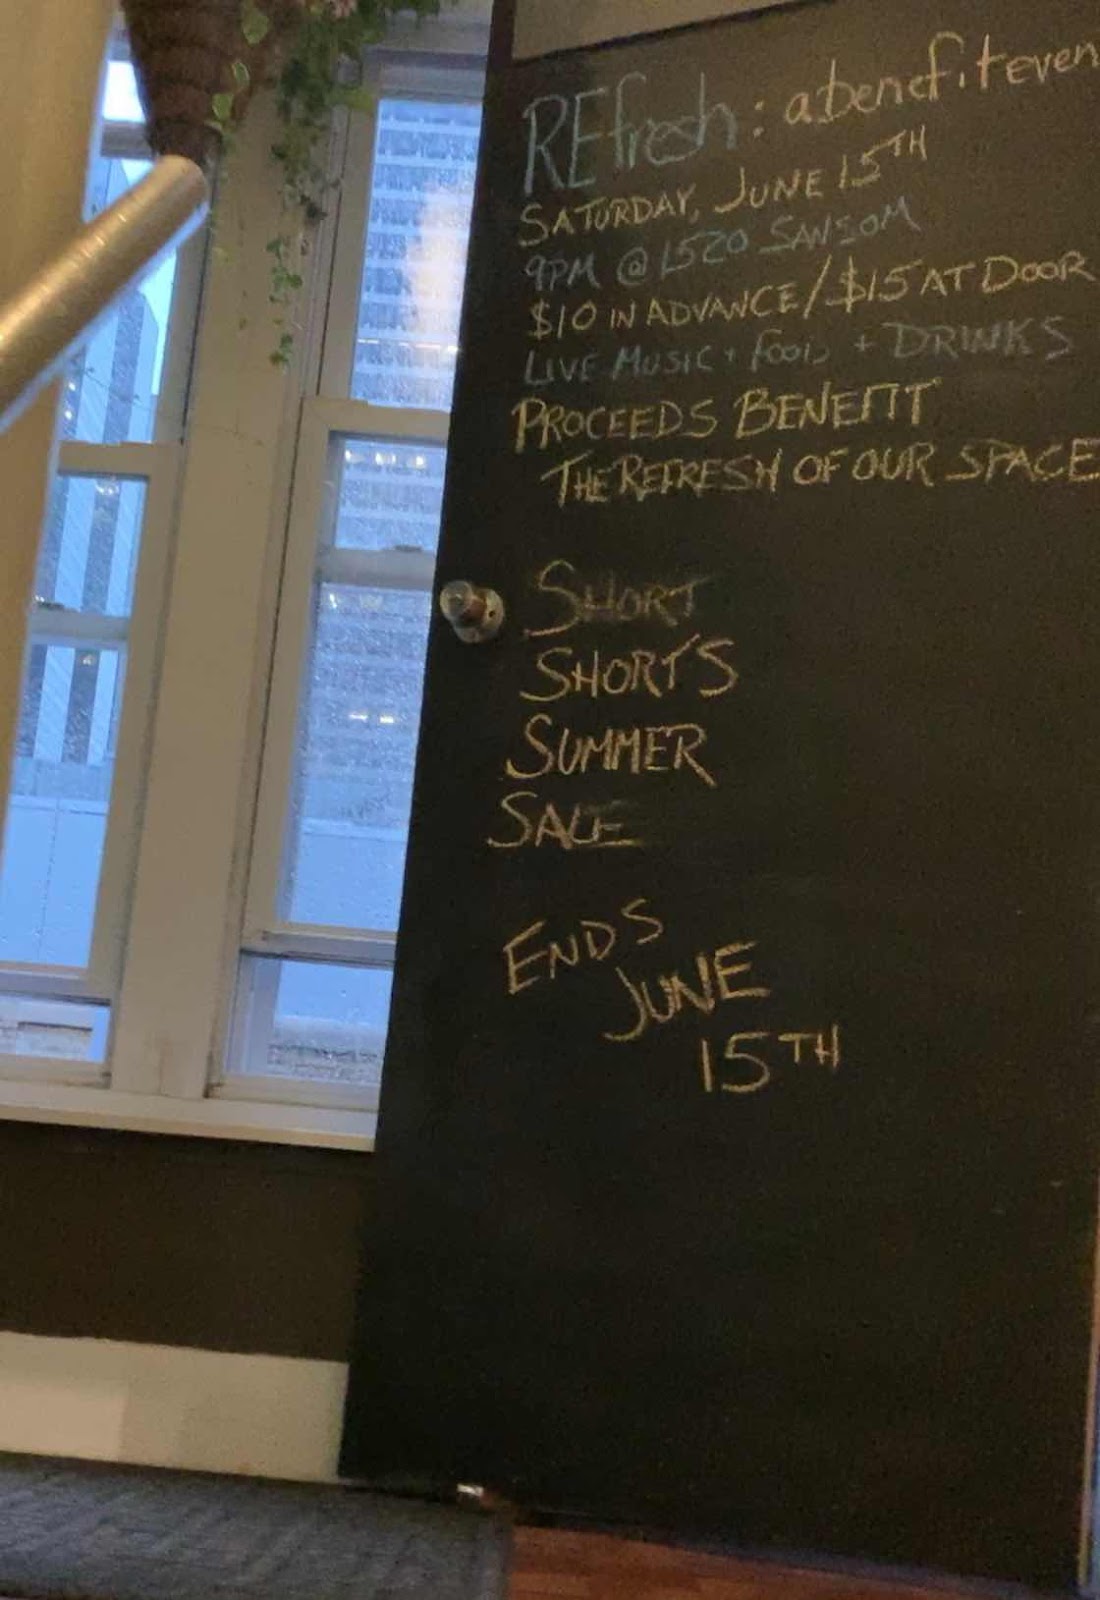 REfresh: a benefit even
SATURDAY, JUNE 15TH
9PM @ 1520 SANSOM
$10 IN ADVANCE/$15 AT DOOR
LIVE MUSIC + FOOD + DRINKS
PROCEEDS BENEFIT
THE REFRESH OF OUR SPACE
SHORT
SHORTS
SUMMER
SALE
ENDS
JUNE
15TH